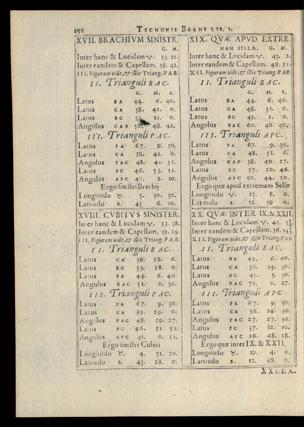 TYCHONIS BRAHE LIB. I.
XVII. BRACHIVM SINISTR.
G. M.
Inter hanc & Lucidam ♈. 33. 21.
Inter eandem & Capellam. 38. 42.
III. Figuram vide, & illic Triang. P A B.
II. Trianguli BAC.
G. M. S.
Latus BA 44. 6. 40.
Latus CA 38. 42. 0.
Latus BC 21. 0.
Angulus CAB 48. 42.
III. Trianguli PAC.
Latus PA 67. 9. 30.
Latus CA 38. 42. 0.
Angulus PAC 48. 44. 51.
Latus PC 46. 53. 51.
Angulus APC 2. 10.
Ergo sinistri Brachij
Longitudo ♉. 5. 10. 30.
Latitudo B. 43. 6. 10.
XVIII. CVBITVS SINISTER.
Inter hanc & Lucidam ♈. 33. 38.
Inter eandem & Capellam. 39. 29
III. Figuram vide, & illic Triang. P A B.
II. Trianguli BAC.
Latus CA 39. 29. 0.
Latus BC 33. 38. 0.
Latus BA 44. 6. 40.
Angulus BAC 51. 0. 50.
III. Trianguli PAC.
Latus PA 67. 9. 30.
Latus CA 39. 29. 0.
Angulus PAC 48. 29. 27.
Latus PC 46. 31. 52.
Angulus APC 41. 0. 31.
Ergo sinistri Cubiti
Longitudo ♉. 4. 51. 20.
Latitudo B. 43. 28. 0.
XIX. QVÆ APVD EXTRE
MAM SELLÆ. G. M.
Inter hanc & Lucidam ♈. 43. 2.
Inter eandem & Capellam. 48. 51.
XII. Figuram vide, & illic Triang. P A B.
II. Trianguli BAC.
G. M. S.
Latus BA 44. 6. 40.
Latus CA 48. 51. 0.
Latus BC 2. 0.
Angulus BAC 60. 40. 40.
III. Trianguli APC.
Latus PA 67. 9. 30.
Latus CA 48. 51. 0.
Angulus CAP 38. 49. 27.
Latus PC 37. 20. 46.
Angulus APC 50. 44. 10.
Ergo quæ apud extremam Sellæ
Longitudo ♉. 25. 8. 0.
Latitudo B. 52. 39. 0.
XX. QVÆ INTER IX. & XXII.
Inter hanc & Lucidam ♈. 45.
Inter eandem & Capellam. 56.
XII. Figuram vide, & illic Triang. P A B.
II. Trianguli BAC.
Latus BA 44. 6. 40.
Latus CA 56. 14. 30.
Latus BC 45. 5. 30.
Angulus BAC 72. 2. 27.
III. Trianguli APC
Latus PA 67. 9. 30.
Latus CA 56. 14. 30.
Angulus PAC 27. 27. 30.
Latus PC 37. 32. 10.
Angulus APC 16. 48. 28.
Ergo quæ inter IX. & XXII.
Longitudo ♉. 19. 4. 0.
Latitudo B. 52. 48. 0.